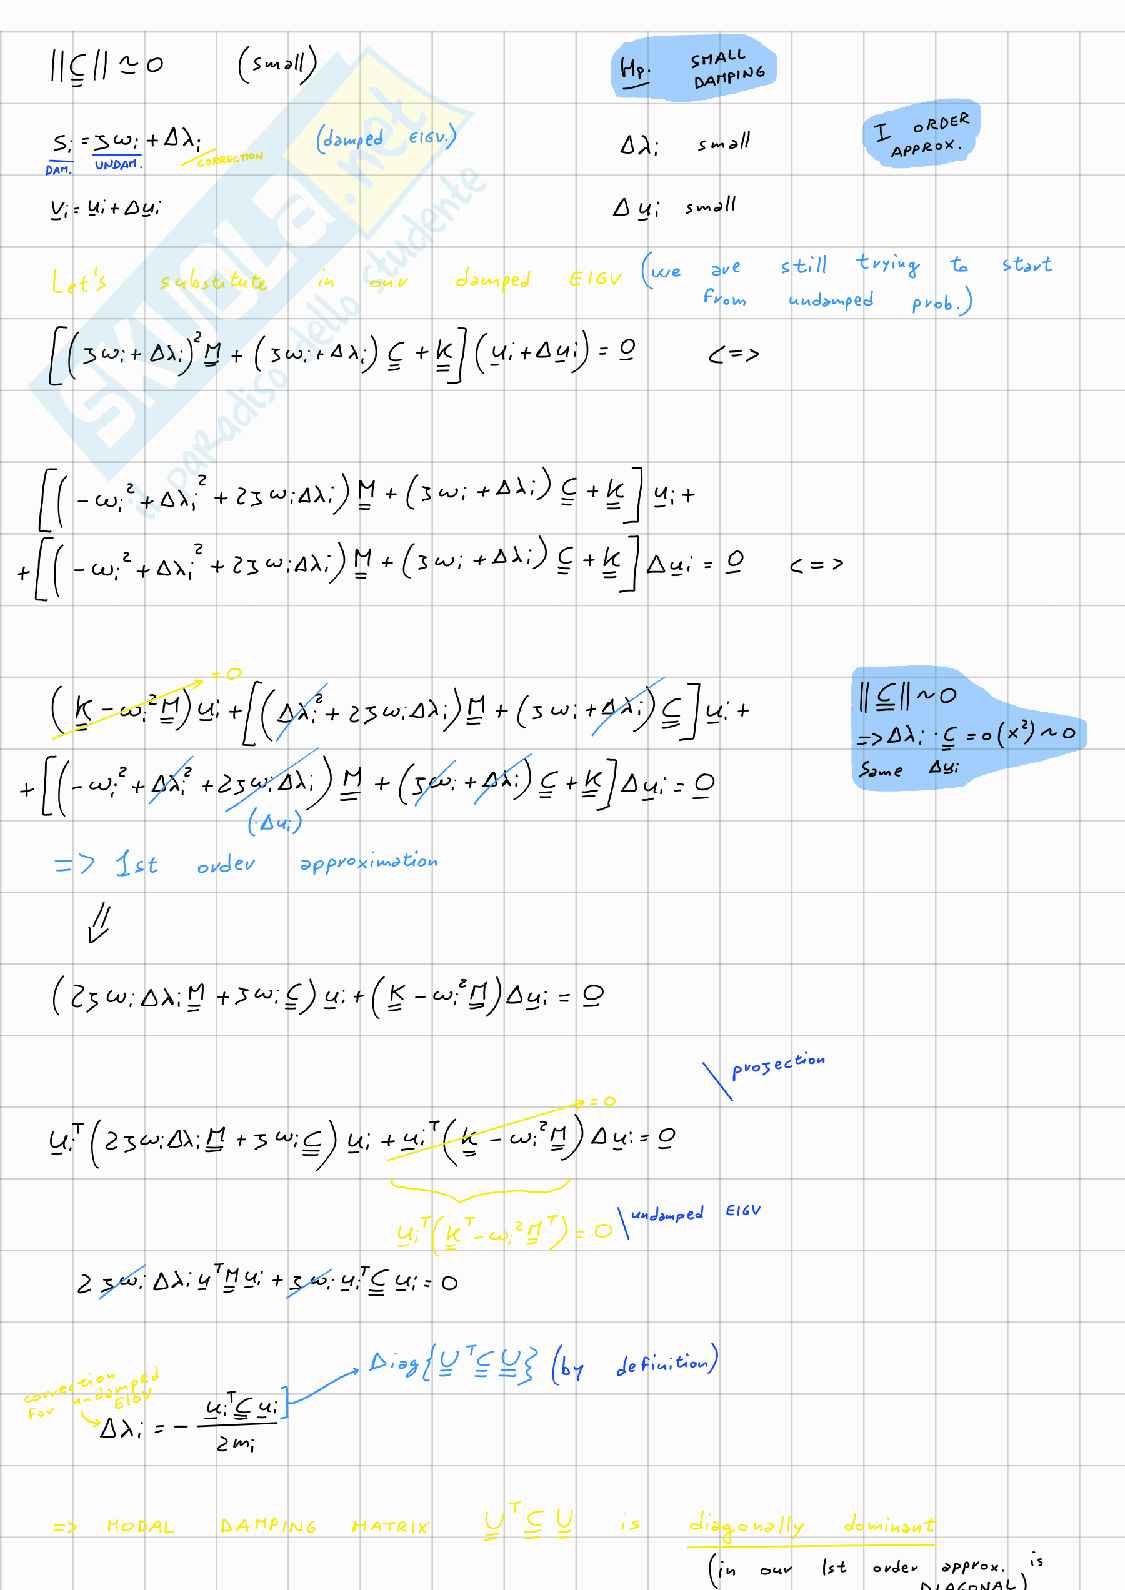 ||C|| ≃ 0 (small) Hp. SMALL DAMPING
s_i = jω_i + Δλ_i (damped EIGV.) Δλ_i small I ORDER APPROX.
DAM. UNDAM. CORRECTION
v_i = u_i + Δu_i Δu_i small
Let's substitute in our damped EIGV (we are still trying to start
from undamped prob.)
[(jω_i + Δλ_i)² M + (jω_i + Δλ_i) C + K] (u_i + Δu_i) = 0 <=>
[(-ω_i² + Δλ_i² + 2jω_iΔλ_i) M + (jω_i + Δλ_i) C + K] u_i +
+ [(-ω_i² + Δλ_i² + 2jω_iΔλ_i) M + (jω_i + Δλ_i) C + K] Δu_i = 0 <=>
= 0
(K - ω_i² M) u_i + [(Δλ_i² + 2jω_iΔλ_i) M + (jω_i + Δλ_i) C] u_i +
+ [(-ω_i² + Δλ_i² + 2jω_iΔλ_i) M + (jω_i + Δλ_i) C + K] Δu_i = 0
(·Δu_i)
||C|| ~ 0
=> Δλ_i · C = o(x²) ~ 0
Same Δu_i
=> 1st order approximation
⇓
(2jω_iΔλ_i M + jω_i C) u_i + (K - ω_i² M) Δu_i = 0
\ projection
= 0
u_i^T (2jω_iΔλ_i M + jω_i C) u_i + u_i^T (K - ω_i² M) Δu_i = 0
u_i^T (K^T - ω_i² M^T) = 0 \ undamped EIGV
2jω_i Δλ_i u^T M u_i + jω_i u_i^T C u_i = 0
Diag{U^T C U} (by definition)
correction
for undamped
EIGV
Δλ_i = - u_i^T C u_i / 2m_i
=> MODAL DAMPING MATRIX U^T C U is diagonally dominant
(in our 1st order approx. is
DIAGONAL)
SKUOLA.net
il paradiso dello studente